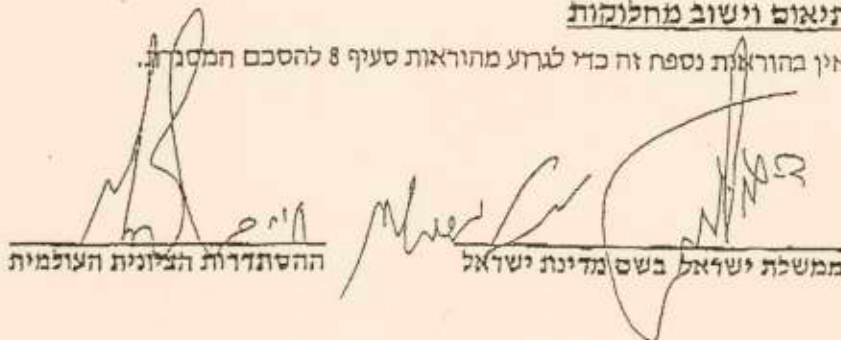 תיאום וישוב מחלוקות
אין בהוראות נספח זה כדי לגרוע מהוראות סעיף 8 להסכם המסגרת.
ממשלת ישראל בשם מדינת ישראל
ההסתדרות הציונית העולמית